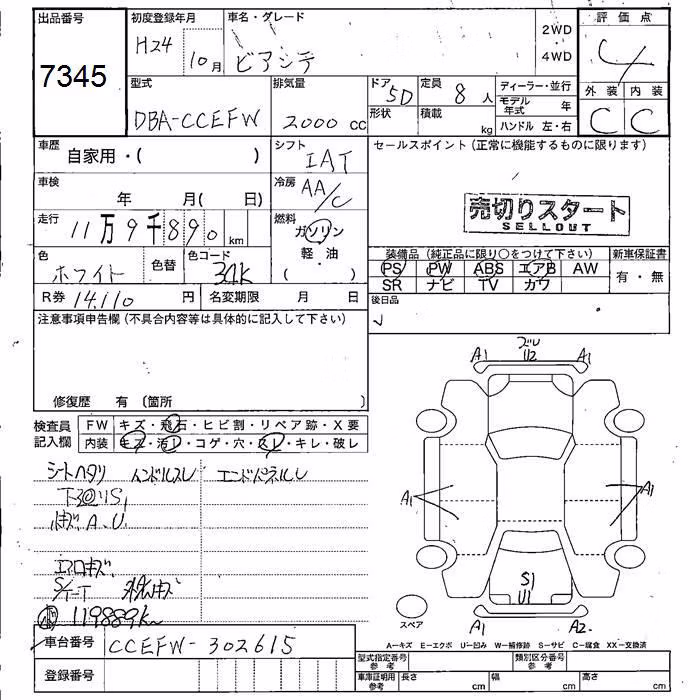 出品番号
7345
初度登録年月
H24 10月
車名・グレード
ビアンテ
2WD
4WD
評価点
4
外装 内装
C C
型式
DBA-CCEFW
排気量
2000 cc
ドア 5D
形状
定員 8 人
積載 kg
ディーラー・並行
モデル年式 年
ハンドル 左・右
車歴
自家用・( )
シフト
IAT
セールスポイント (正常に機能するものに限ります)
車検
年 月( 日)
冷房
AA/C
売切りスタート
SELLOUT
走行
11万9千890 km
燃料
ガソリン
軽・油
( )
色
ホワイト
色替
色コード
34K
装備品 (純正品に限り○をつけて下さい)
新車保証書
PS PW ABS エアB AW
SR ナビ TV カワ
有・無
R券 14,110 円
名変期限 月 日
後日品
注意事項申告欄 (不具合内容等は具体的に記入して下さい)
修復歴 有 〔箇所 〕
検査員
記入欄
FW キズ・飛石・ヒビ割・リペア跡・X要
内装 キズ・汚レ・コゲ・穴・スレ・キレ・破レ
シートヘタリ ハンドルスレ エンドパネルU
下廻りS1
A.U
エアロキズ
119889K
A1 U2 A1
A1 A1
S1
U1
A1 A2
スペア
A-キズ E-エクボ U-凹み W-補修跡 S-サビ C-腐食 XX-交換済
車台番号
CCEFW-302615
登録番号
型式指定番号
参考
類別区分番号
参考
車庫証明用
参考
長さ cm
幅 cm
高さ cm